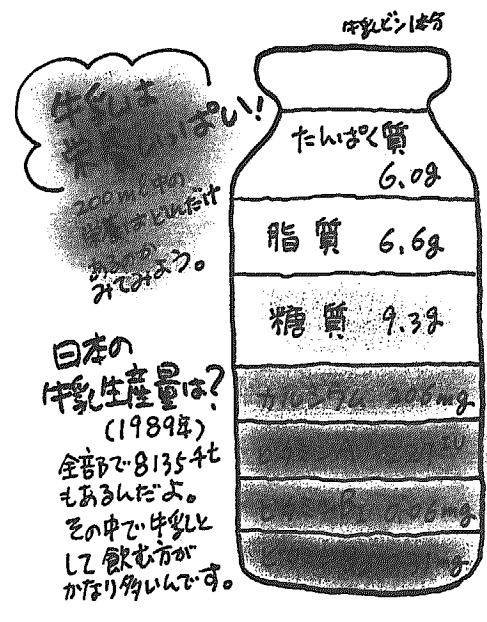 牛乳ビン1本分
牛乳は
栄養いっぱい!
200ml中の
栄養はどれだけ
あるのか
みてみよう。
たんぱく質
6.0g
脂質 6.6g
糖質 9.3g
カルシウム 206mg
ビタミンA
ビタミンB1 0.06mg
日本の
牛乳生産量は?
(1989年)
全部で8135千t
もあるんだよ。
その中で牛乳と
して飲む方が
かなり多いんです。